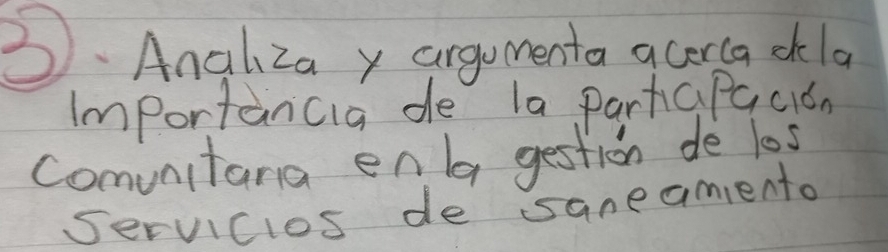 3). Analiza y argumenta acerca de la
Importancia de la participación
comunitaria en la gestión de los
servicios de saneamiento